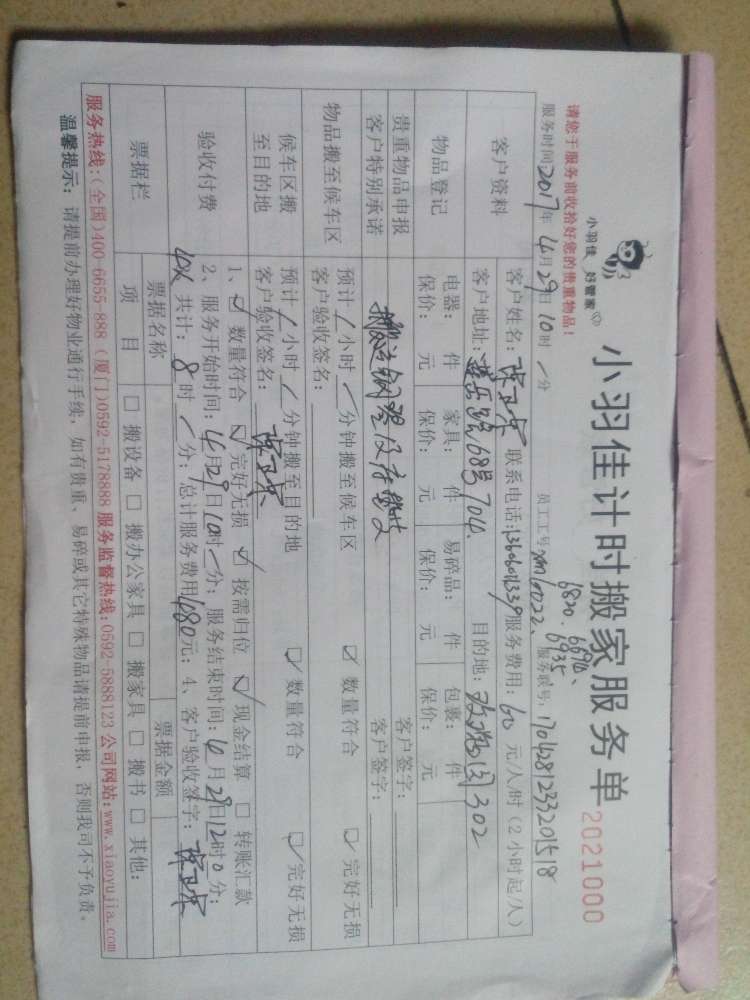 小羽佳 好管家
小羽佳计时搬家服务单 2021000
请您于服务前收拾好您的贵重物品!
服务时间:2017年4月29日10时/分 员工工号:xm16022、6820、6696、6935 服务联号:1704281233201518
客户资料 客户姓名: 联系电话:13606011339 服务费用:60 元/人/时(2小时起/人)
客户地址: 68号704. 目的地: 302
物品登记 电器: 件 家具: 件 易碎品: 件 包裹: 件
保价: 元 保价: 元 保价: 元 保价: 元
贵重物品申报 客户签字:
客户特别承诺 搬运钢琴没有 客户签字:
物品搬至候车区 预计/小时/分钟搬至候车区 ☑数量符合 ☑完好无损
客户验收签名:
候车区搬至目的地 预计/小时/分钟搬至目的地 ☑数量符合 ☑完好无损
客户验收签名:
验收付费 1、☑数量符合 ☑完好无损 ☑按需归位 ☑现金结算 □转账汇款
2、服务开始时间:4月29日10时/分; 服务结束时间:4月29日12时0分;
共计:8时/分; 总计服务费用480元; 4、客户验收签字:
票据栏 票据名称 票据金额
项目 □搬设备 □搬办公家具 □搬家具 □搬书 □其他:
服务热线:(全国)400-6655-888 (厦门)0592-5178888 服务监督热线:0592-5888123 公司网站:www.xiaoyujia.com
温馨提示: 请提前办理好物业通行手续, 如有贵重、易碎或其它特殊物品请提前申报, 否则我司不予负责。